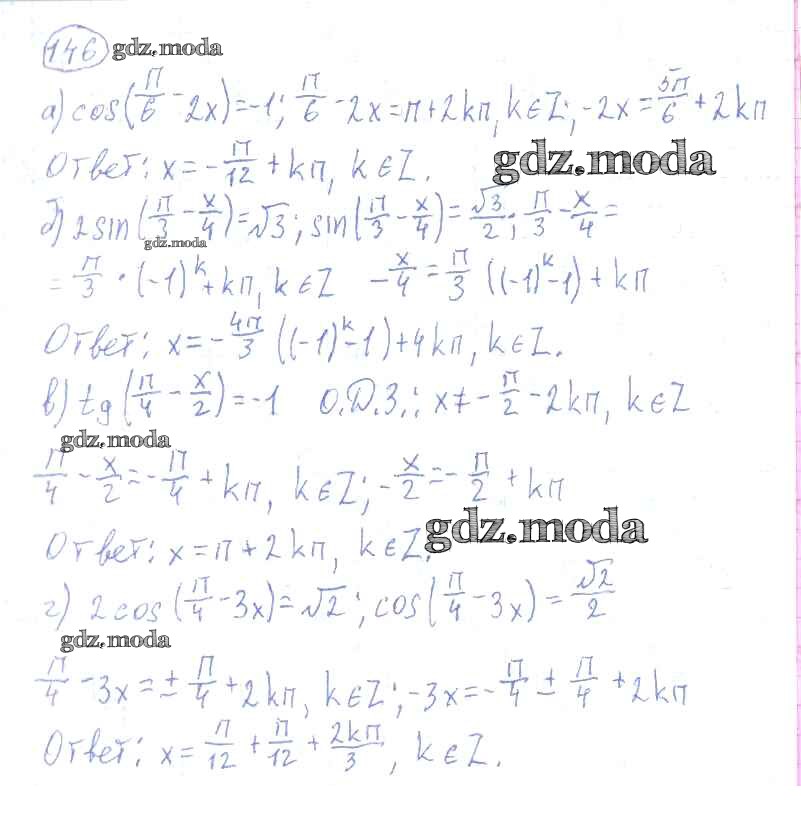 146 gdz.moda
а) cos(π/6 - 2x) = -1; π/6 - 2x = π + 2kπ, k∈Z; -2x = 5π/6 + 2kπ
Ответ: x = -π/12 + kπ, k∈Z. gdz.moda
б) 2sin(π/3 - x/4) = √3; sin(π/3 - x/4) = √3/2; π/3 - x/4 =
gdz.moda
= π/3 · (-1)^k + kπ, k∈Z -x/4 = π/3 ((-1)^k - 1) + kπ
Ответ: x = -4π/3 ((-1)^k - 1) + 4kπ, k∈Z.
в) tg(π/4 - x/2) = -1 О.Д.З.: x ≠ -π/2 - 2kπ, k∈Z
gdz.moda
π/4 - x/2 = -π/4 + kπ, k∈Z; -x/2 = -π/2 + kπ
Ответ: x = π + 2kπ, k∈Z. gdz.moda
г) 2cos(π/4 - 3x) = √2; cos(π/4 - 3x) = √2/2
gdz.moda
π/4 - 3x = ± π/4 + 2kπ, k∈Z; -3x = -π/4 ± π/4 + 2kπ
Ответ: x = π/12 ± π/12 + 2kπ/3, k∈Z.